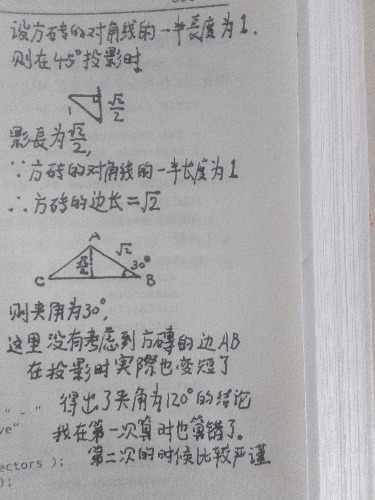 设方砖的对角线的一半長度为1.
则在45°投影时
1 √2/2
影長为√2/2,
∵方砖的对角线的一半长度为1
∴方砖的边长=√2
A
√2/2 √2 30°
C B
则夹角为30°,
这里没有考虑到方磚的边AB
在投影时实际也变短了
" - " 得出了夹角为120°的结论
ve" 我在第一次算时也算错了.
ectors ); 第二次的时候比较严谨
);